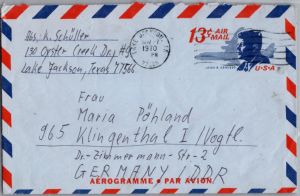 Abs. K. Schüller
130 Oyster Creek Dr. #5
Lake Jackson, Texas 77566
LAKE JACKSON, TX
1970
PM
13¢ AIR MAIL
JOHN F. KENNEDY
U·S·A
Frau
Maria Pöhland
965 Klingenthal I /Vogtl.
Dr.-Zimmermann-Str-2
GERMANY, DDR
AEROGRAMME • PAR AVION